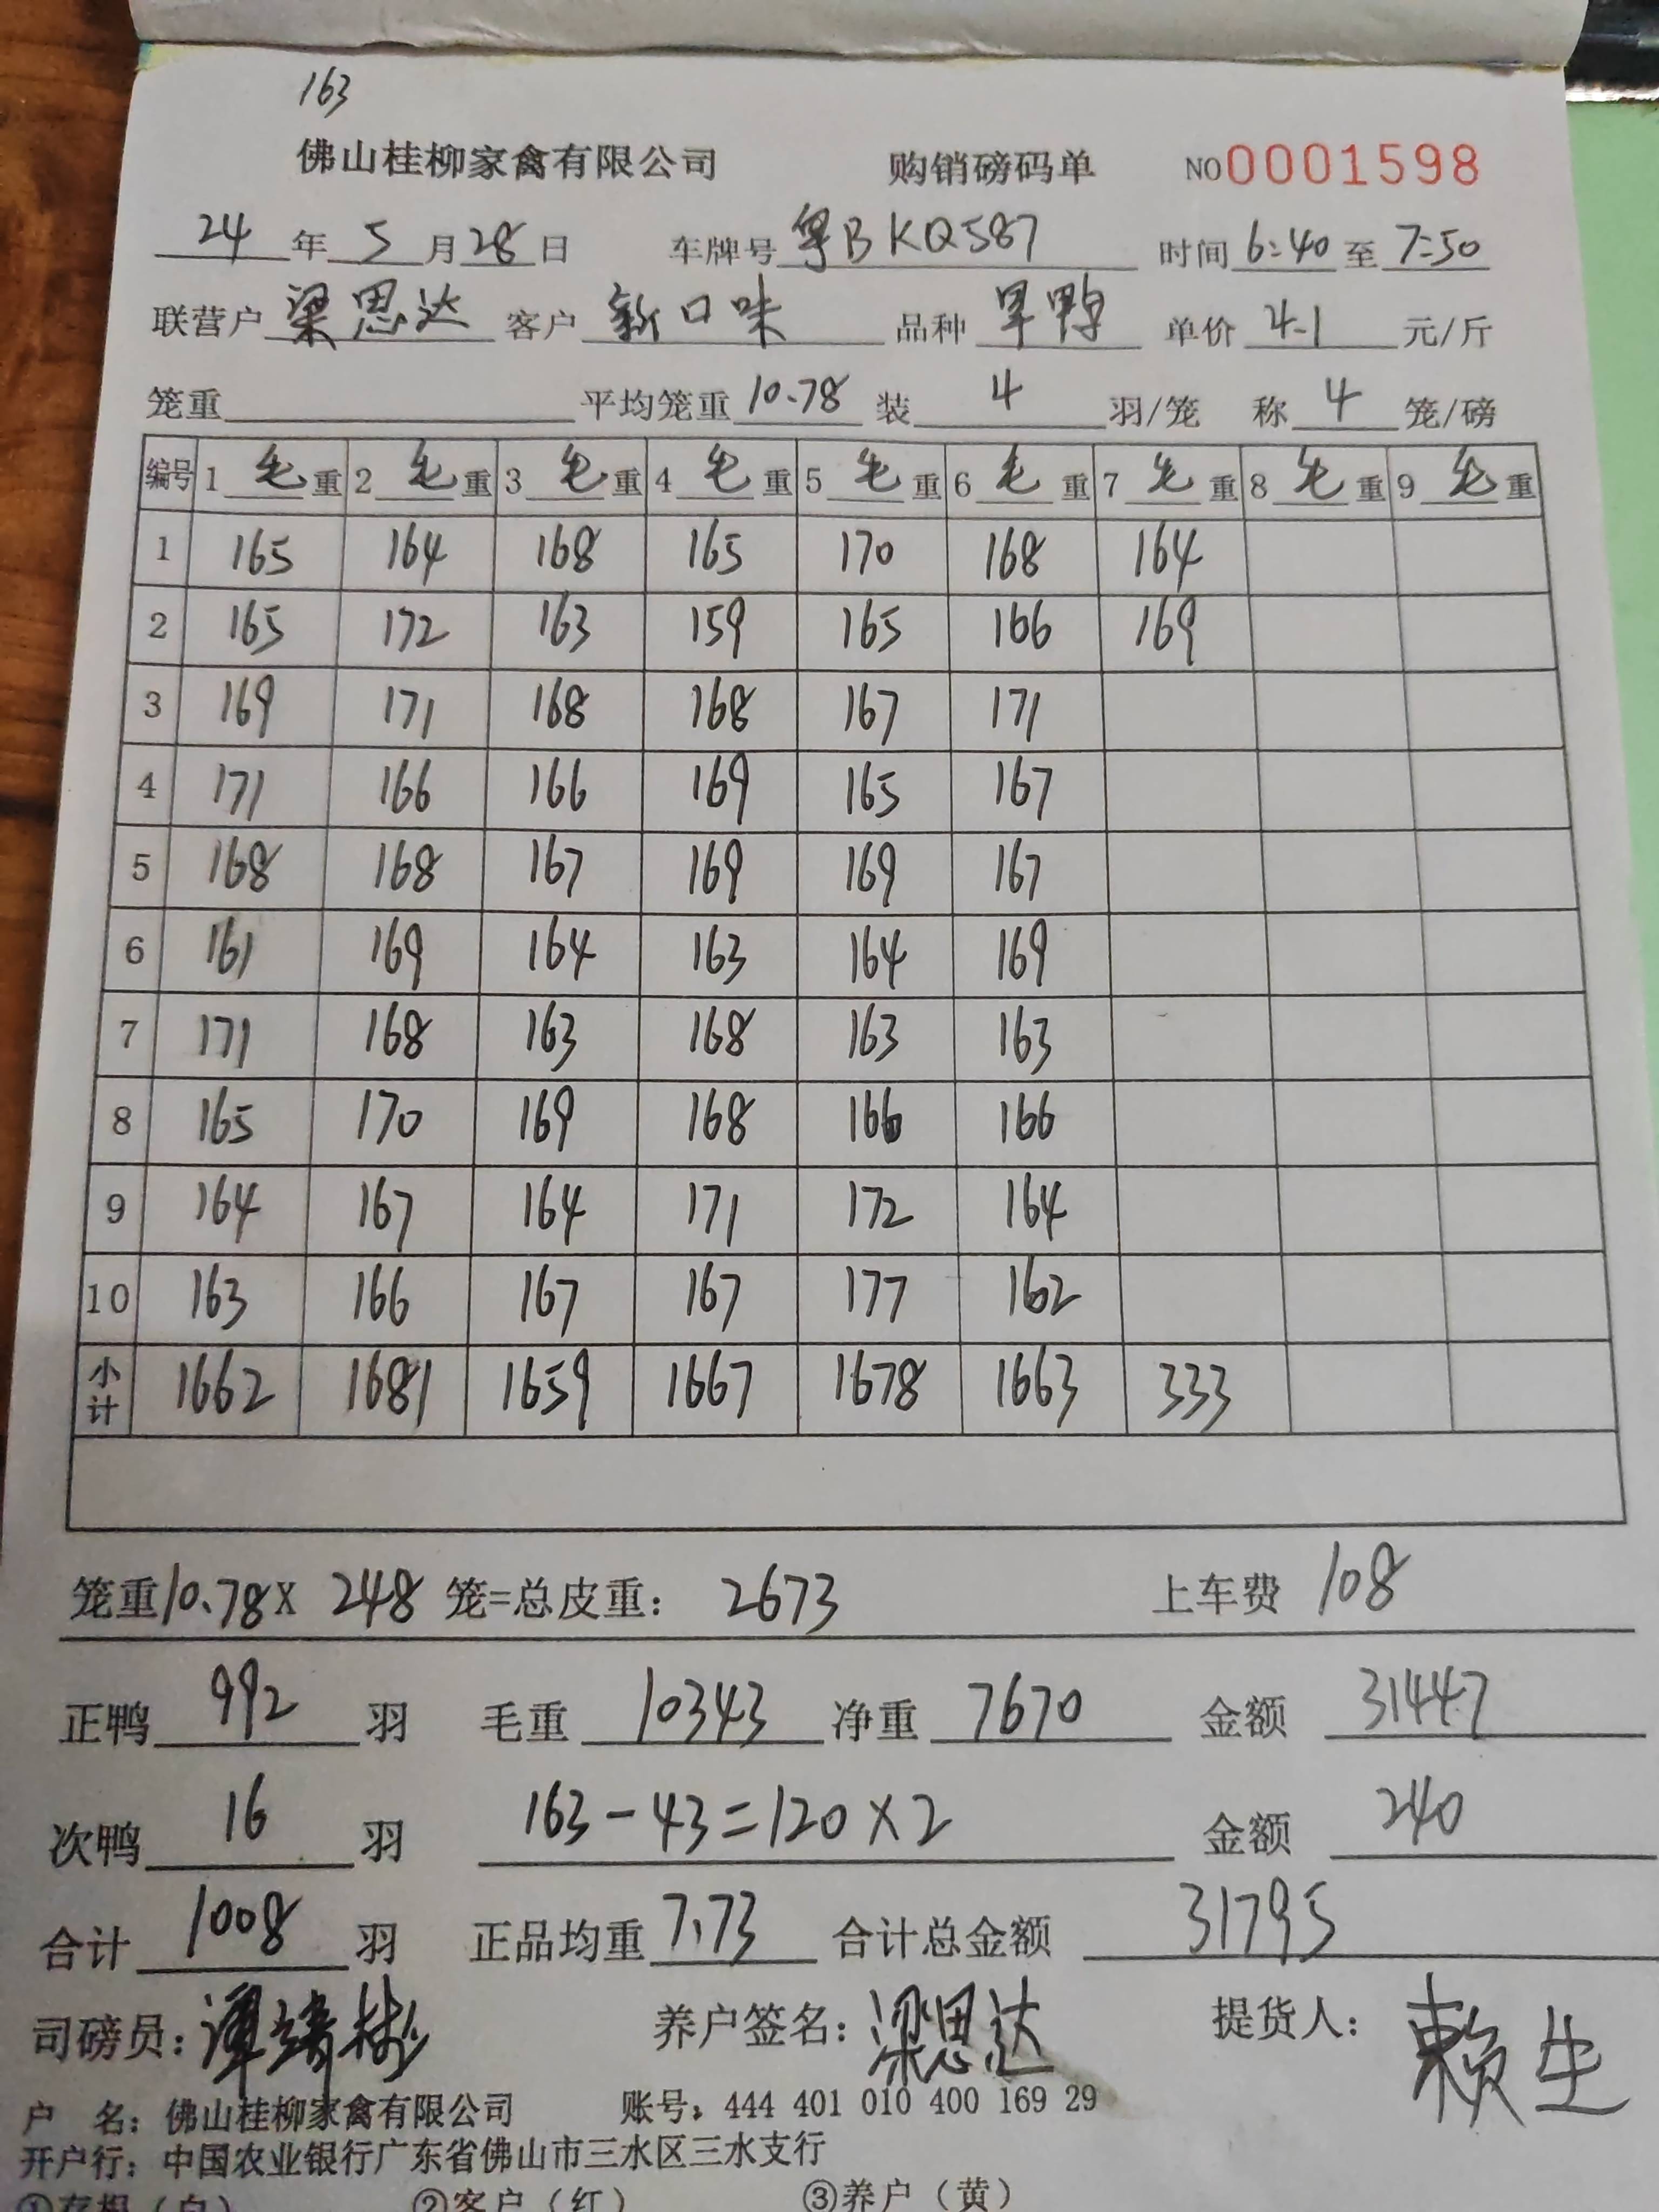 163
佛山桂柳家禽有限公司 购销磅码单 NO0001598
24年5月28日 车牌号粤BKQ587 时间6:40至7:50
联营户梁思达 客户新口味 品种旱鸭 单价4.1元/斤
笼重 平均笼重10.78 装4羽/笼 称4笼/磅
编号 1毛重 2毛重 3毛重 4毛重 5毛重 6毛重 7毛重 8毛重 9毛重
1 165 164 168 165 170 168 164
2 165 172 163 159 165 166 169
3 169 171 168 168 167 171
4 171 166 166 169 165 167
5 168 168 167 169 169 167
6 161 169 164 163 164 169
7 171 168 163 168 163 163
8 165 170 169 168 166 166
9 164 167 164 171 172 164
10 163 166 167 167 177 162
小计 1662 1681 1659 1667 1678 1663 333
笼重10.78X 248笼=总皮重: 2673 上车费 108
正鸭992羽 毛重10343 净重7670 金额31447
次鸭16羽 163-43=120×2 金额240
合计1008羽 正品均重7.73 合计总金额31795
司磅员:谭 彬 养户签名:梁思达 提货人:赖生
户 名:佛山桂柳家禽有限公司 账号:444 401 010 400 169 29
开户行:中国农业银行广东省佛山市三水区三水支行
①存根(白) ②客户(红) ③养户(黄)